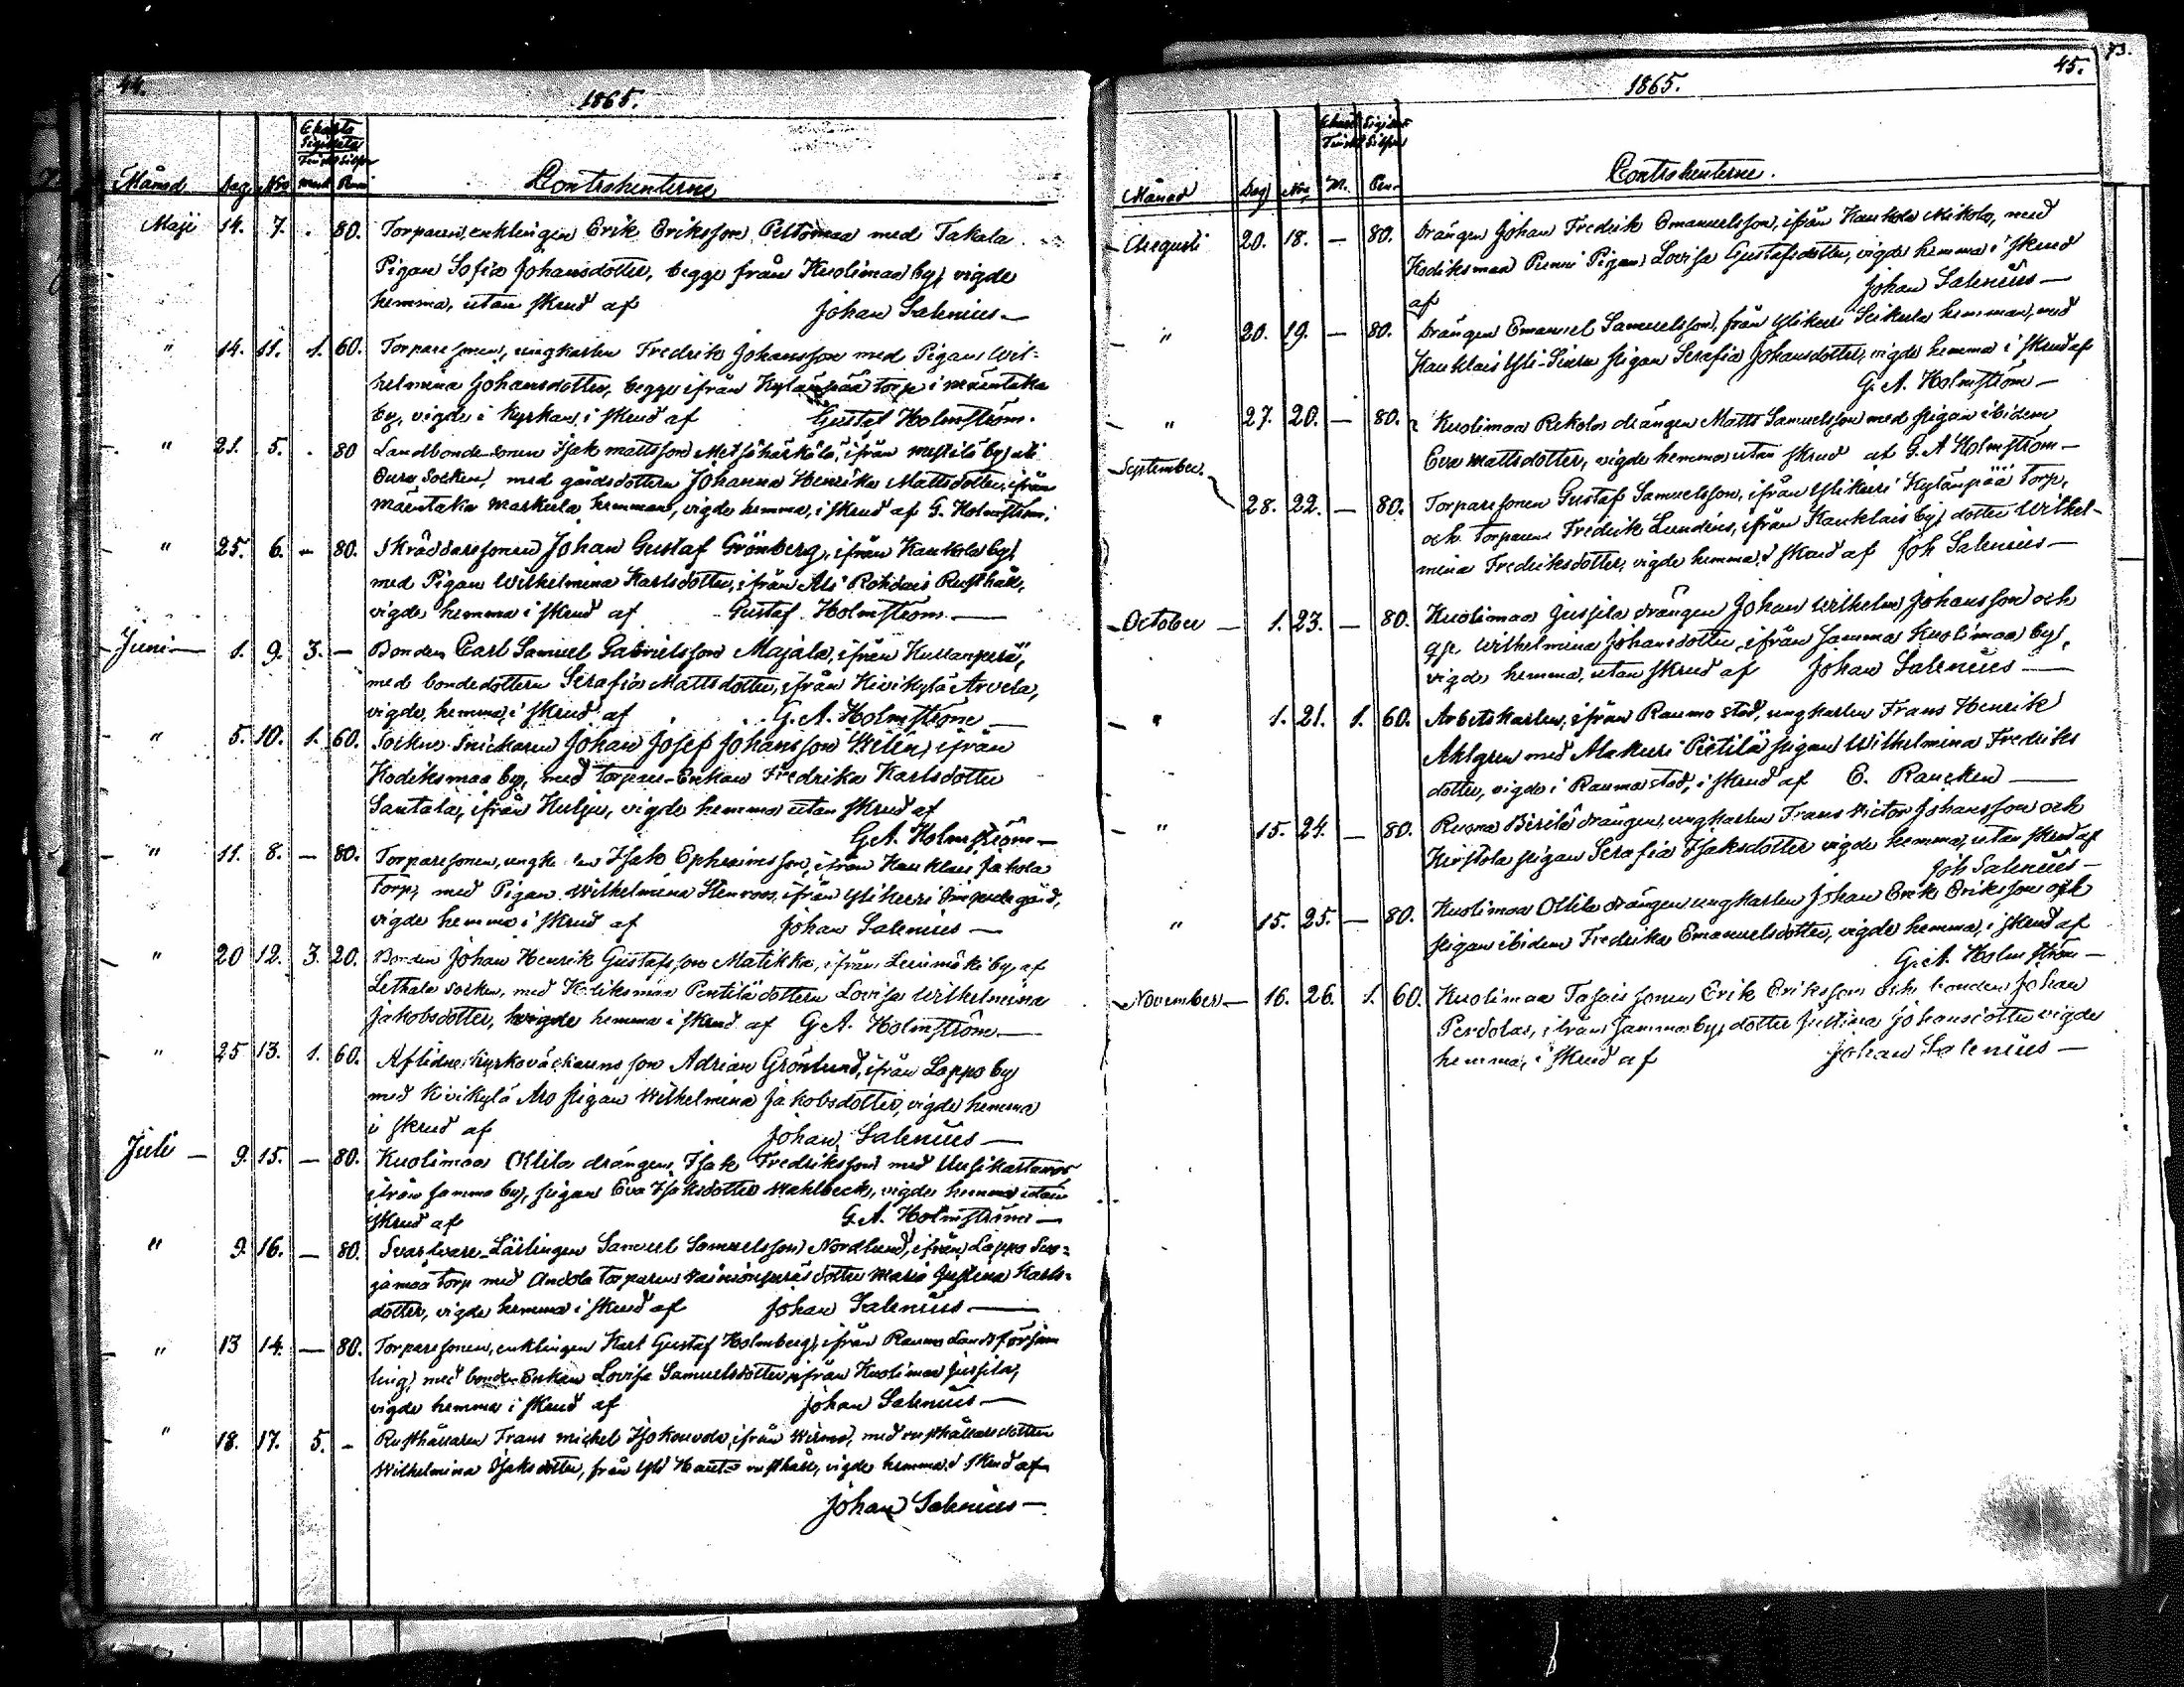 44.
1865.
Charta
Sigillata
Månad Dag Nro mark Penni Contrahenterne
Maji 14. 7. . 80. Torparen, enklingen Erik Eriksson Peltomaa med Takala
Pigan Sofia Johansdotter, begge från Kuolimaa by, vigde
hemma, utan skrud af Johan Salenius —
" 14. 11. 1. 60. Torparesonen, ungkarlen Fredrik Johansson med Pigan Wil=
helmina Johansdotter, begge ifrån Kylänpää torp i Mäentaka
by, vigde i Kyrkan, i skrud af Gustaf Holmström.
" 21. 5. . 80 Landbonde-sonen Isak Mattsson Metsähärkälä, ifrån
Eura Socken, med gårdsdottern Johanna Henrika Mattsdotter, ifrån
Mäentaka Markula hemman, vigde hemma, i skrud af G. Holmström.
" 25. 6. — 80. Skräddaresonen Johan Gustaf Grönberg, ifrån Kaukola by,
med Pigan Wilhelmina Karlsdotter, ifrån Ali Rohdais Rusthåll,
vigde hemma i skrud af Gustaf Holmström —
Juni — 1. 9. 3. — Bonden Carl Samuel Gabrielsson Majala, ifrån Kullanperä,
med bondedottern Serafia Mattsdotter, ifrån Kivikylä Arvela,
vigde, hemma, i skrud af G. A. Holmström —
" 5. 10. 1. 60. Sockne-Snickaren Johan Josef Johansson Welin, ifrån
Kodiksmaa by, med torpare-Enkan Fredrika Karlsdotter
Santala, ifrån Kulju, vigde hemma utan skrud af
G. A. Holmström —
" 11. 8. — 80. Torparesonen, Isak Ephraimsson, ifrån Kauklais Jakola
Torp, med Pigan Wilhelmina Stenroos, ifrån Ylikieri gård,
vigde hemma i skrud af Johan Salenius —
" 20 12. 3. 20. Bonden Johan Henrik Gustafsson Matikka, ifrån by af
Socken, med Kodiksmaa Penttilä dottern Lovisa Wilhelmina
Jakobsdotter, vigde hemma i skrud af G. A. Holmström —
" 25 13. 1. 60. Aflidne Kyrkoväktarens son Adrian Grönlund, ifrån Lappo by
med Kivikylä Aro pigan Wilhelmina Jakobsdotter, vigde hemma
i skrud af Johan Salenius —
Juli — 9. 15. — 80. Kuolimaa Ollila drängen Isak Fredriksson med
ifrån samma by, pigan Eva Isaksdotter Wahlbeck, vigde hemma utan
skrud af G. A. Holmström —
" 9. 16. — 80. Svarfvare-Lärlingen Samuel Samuelsson Nordlund, ifrån Lappo
torp med Andola torparen dotter Maria Justina Karls=
dotter, vigde hemma i skrud af Johan Salenius —
" 13 14. — 80. Torparesonen, enklingen Karl Gustaf Holmberg, ifrån Raumo Landsförsam
ling, med bonde-Enkan Lovisa Samuelsdotter, ifrån Kuolimaa Jussila,
vigde hemma i skrud af Johan Salenius —
" 18. 17. 5. — Rusthållaren Frans Michel ifrån Wirmo, med rusthållaredottern
Wilhelmina Isaksdotter, från rusthåll, vigde hemma i skrud af
Johan Salenius —
73.
45.
1865.
Månad Dag Nro M. Pen. Contrahenterne.
Augusti 20. 18. — 80. Drängen Johan Fredrik Emanuelsson, ifrån Kaukola Mikola, med
Kodiksmaa Pigan Lovisa Gustafsdotter, vigde hemma i skrud
af Johan Salenius —
" 20. 19. — 80. Drängen Emanuel Samuelsson, från Ylikieri Seikula hemman, med
Kauklais Yli-Sixin pigan Serafia Johansdotter, vigde hemma i skrud af
G. A. Holmström —
" 27. 20. — 80. Kuolimaa Rekola drängen Matts Samuelsson med pigan ibidem
Eva Mattsdotter, vigde hemma utan skrud af G. A Holmström —
September. 28. 22. — 80. Torparesonen Gustaf Samuelsson, ifrån Ylikieri Kylänpää torp,
och Torparen Fredrik Lundens, ifrån Kauklais by, dotter Wilhel-
mina Fredriksdotter, vigde hemma i skrud af Joh Salenius —
October — 1. 23. — 80. Kuolimaa Jussila drängen Johan Wilhelm Johansson och
qp. Wilhelmina Johansdotter, ifrån samma Kuolimaa by,
vigde hemma, utan skrud af Johan Salenius —
" 1. 21. 1. 60. Arbetskarlen, ifrån Raumo stad, ungkarlen Frans Henrik
Ahlgren med Alakieri Pietilä pigan Wilhelmina Fredriks
dotter, vigde i Raumo stad, i skrud af E. Rancken —
" 15. 24. — 80. Ruona Birilä drängen, ungkarlen Frans Victor Johansson och
Kirstola pigan Serafia Isaksdotter vigde hemma, utan skrud af
Joh Salenius —
" 15. 25. — 80. Kuolimaa Ollila drängen ungkarlen Johan Erik Eriksson och
pigan ibidem Fredrika Emanuelsdotter, vigde hemma, i skrud af
G. A. Holmström —
November — 16. 26. 1. 60. Kuolimaa sonen Erik Eriksson och bonden Johan
Perdolas, ifrån samma by, dotter Justina Johansdotter vigde
hemma, i skrud af Johan Salenius —